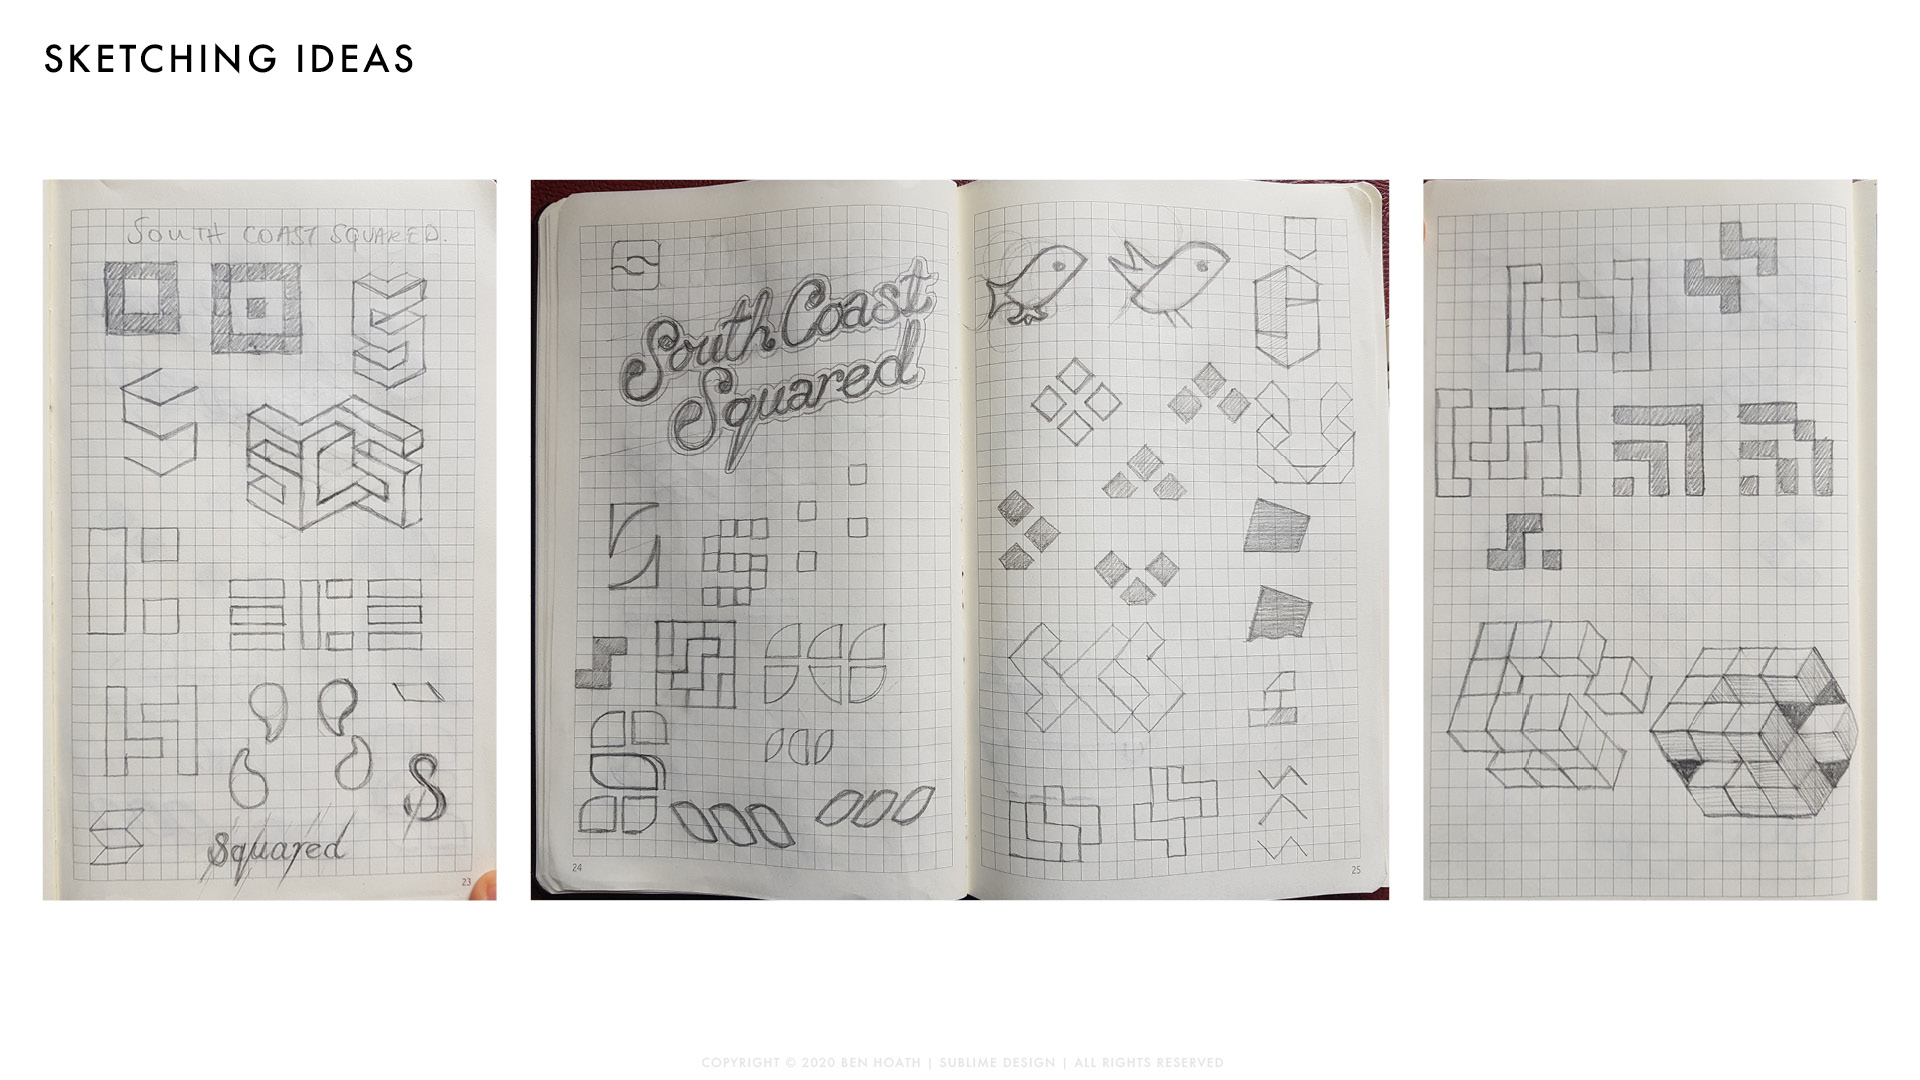 SKETCHING IDEAS
SOUTH COAST SQUARED.
Squared
23
South Coast
Squared
24
25
COPYRIGHT © 2020 BEN HOATH | SUBLIME DESIGN | ALL RIGHTS RESERVED